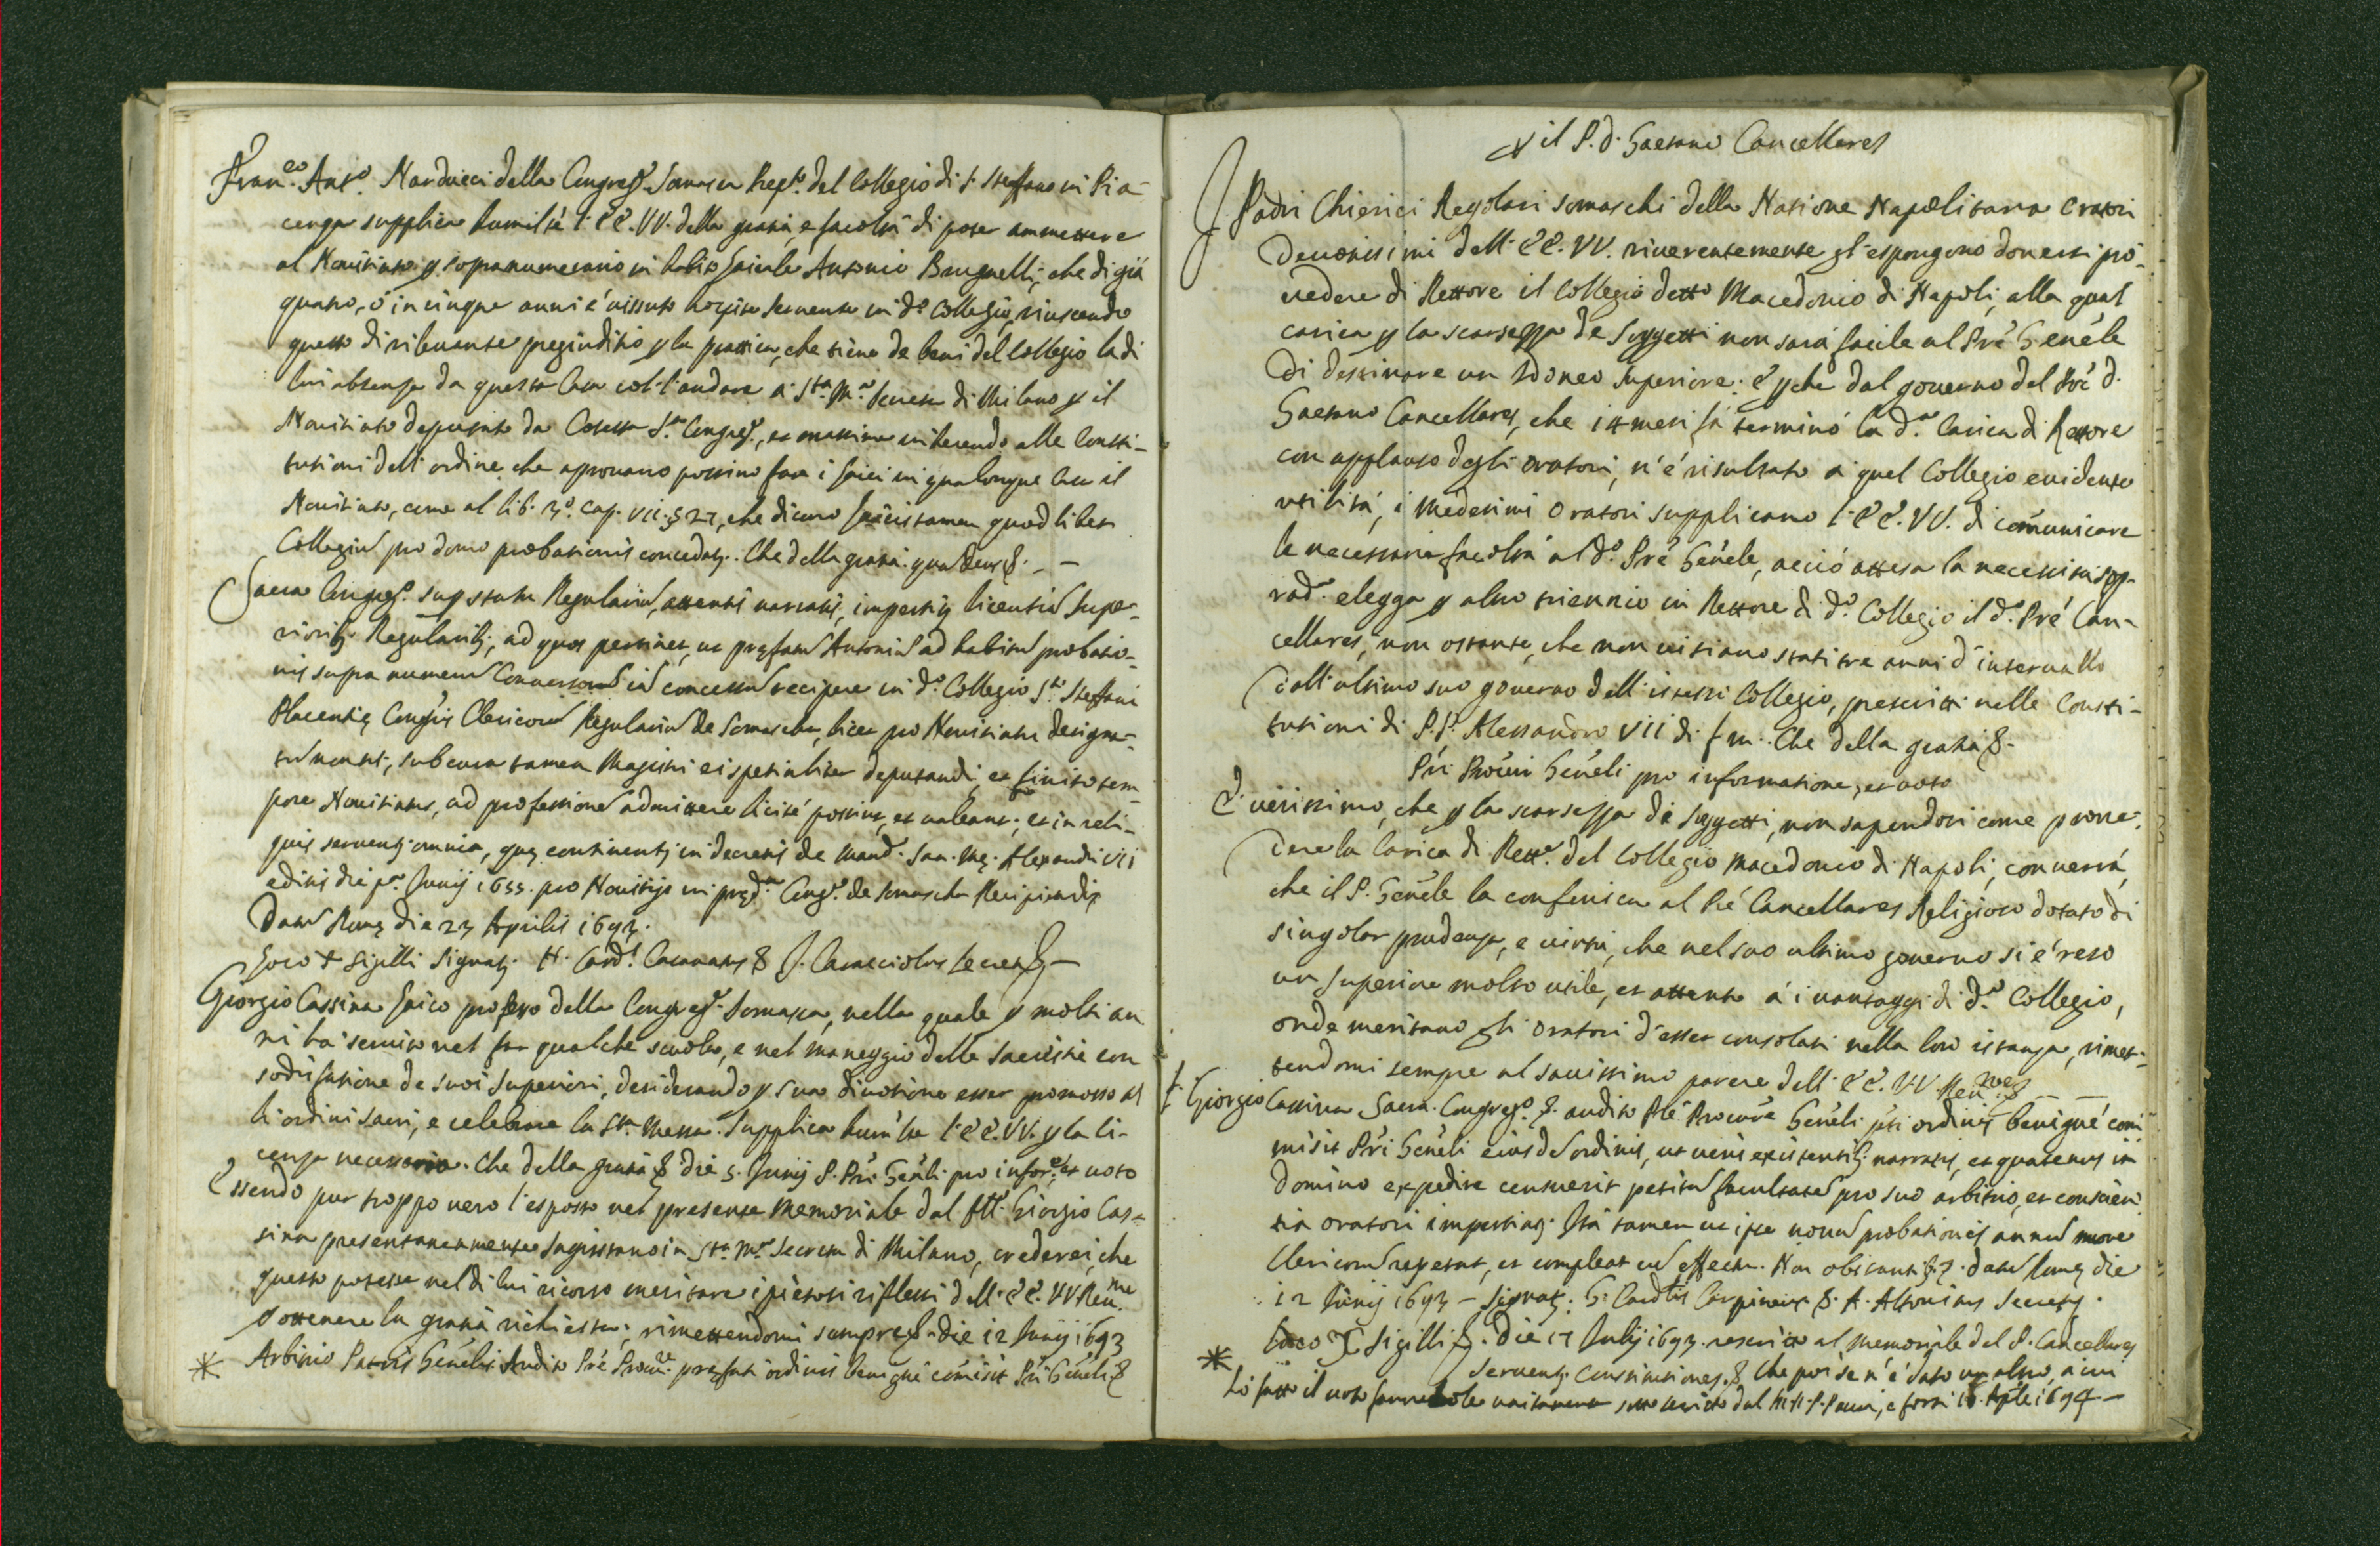 Fran.co Ant.o Narducci della Congreg.e Somasca Rett.e del Collegio di S. Steffano in Pia-
cenza supplica humil.te l'EE. VV. della grazia, e facoltà di poter ammettere
al Novitiato p sopranumerario in habito Laicale Antonio Brugnelli, che di già
quatro, ó in cinque anni é vissuto hospite servente in d.o Collegio, riuscendo
questo di rilevante pregiuditio p la prattica, che tiene de beni del Collegio la di
lui absenza da questa Casa col l'andare a S.ta M.a Secreta di Milano p il
Novitiato deputato da Cotesta S.a Congreg.e, et massime inherendo alle Consti-
tutioni dell'ordine che aprovano possino fare i Laici in qualonque Casa il
Novitiato, come al lib. 3.o Cap. vii. § 27, che dicono Laicis tamen quod libet
Collegiu pro domo probationis concedat. Che della grazia. qua Deus &. - -
Sacra Congreg.o sup statu Regulariu, attentis narratis, impertiȝ licentia Supe-
rioribȝ Regularibȝ, ad quos pertinet, ut pręfatu Antoniu ad habitu probatio-
nis supra numeru Conversoru iȝ concessu recipere in d.o Collegio S.ti Steffani
Placentię Cong.nis Clericoru Regulariu de Somascha, licet pro Novitiatu designa-
tu non sit, sub cura tamen Magistri ei spetialiter deputandi, et finito tem-
pore Novitiatus, ad professione admittere licité possint, et valeant; et in reli-
quis serventȝ omnia, quę continentȝ in decretis de mand. San. Mę. Alexandri VII
editis die p.a Junij 1655. pro Novitijs in pręd.a Cong.e de Somascha Recipiendis
Datu Romę die 23 Aprilis 1693.
Loco + Sigilli Signatȝ. H. Card.l Casanate & J. Caracciolus Secret.s & -
Giorgio Cassina Laico professo della Congreg.e Somasca, nella quale p molti an
ni há servito nel far qualche scuola, e nel maneggio delle Sacristie con
sodisfatione de suoi Superiori, desiderando p sua divotione esser promosso a
li ordini sacri, e celebrare la S.ta Messa. Supplica hum.te l'EE. VV. p la li-
cenza necessaria. Che della grazia & die 5. Junij P. Pri Gen'li pro infor.e, et voto
Essendo pur troppo vero l'esposto nel presente Memoriale dal ftt.o Giorgio Cas-
sina presentaneamente Sagristano in S.ta M.a Secreta di Milano, crederei, che
questo potesse nel di lui ricorso meritare i pietosi riflessi dell'EE. VV. Reu.me
p ottenere la grazia richiesta; rimettendomi sempre &. die 12 Junij 1693
* Arbitrio Patris Gen'lis Audito P're Procu.re prefati ordinis benigné cómisit P'ri Gen'li &
p il P. D. Gaetano Cancellares
I Padri Chierici Regolari Somaschi della Natione Napolitana Oratori
Devotissimi dell'EE. VV. riverentemente gl'espongono doversi pro-
vedere di Rettore il Collegio detto Macedonio di Napoli, alla qual
carica p la scarsezza de Soggetti non sará facile al Pré Gen'le
di destinare un Idoneo Superiore. E p che dal governo del Pré D.
Gaetano Cancellares, che 14 mesi fá terminó la d.a Carica di Rettore
con applauso degli Oratori, n'é risultato a quel Collegio evidente
utilitá, i medesimi Oratori supplicano l'EE. VV. di cómunicare
la necessaria facoltá al d.o Pré Gen'le, acció attesa la necessitá sop-
rad.a elegga p altro triennio in Rettore di d.o Collegio il d.o Pré Can-
cellares, non ostante, che non vi siano stati tre anni d'intervallo
dall'ultimo suo governo dell'istesso Collegio, prescritti nelle Consti-
tutioni di P.P. Alessandro VII di f. m. Che della grazia &.
P'ri Procu'ri Gen'eli pro informatione, et voto
E' verissimo, che p la scarsezza di soggetti, non sapendosi come prove-
dere la Carica di Rett.e del Collegio Macedonio di Napoli, converrá,
che il P. Gen'le la conferisca al Pré Cancellares Religioso dotato di
singolar prudenza, e virtú, che nel suo ultimo governo si é reso
un Superiore molto utile, et attento á i vantaggi di d.o Collegio,
onde meritano gli Oratori d'esser consolati nella loro istanza, rimet-
tendomi sempre al savissimo parere dell'EE. VV. Reu.me &
Giorgio Cassina Sacra Congreg.o &. audito P're Procu're Gen'eli p'ti ordinis benigné com
misit P'ri Gen'eli eiusd ordinis, ut veris existentibȝ narratis, et quatenus in
Domino expedire censuerit petita facultate pro suo arbitrio, et conscien
tia oratori impertiatȝ. Ita tamen ut ipse novu probationis annu more
Clericoru repetat, et compleat cu effectu. Non obstantibȝ &. Datu Romę die
12 Junij 1693 - Signatȝ. G. Card.lis Carpineus &. A. Altovitus Secret.s
Loco + Sigilli &. Die 17 Julij 1693. rescritto al memoriale del P. Cancellares
* Serventȝ Constitutiones & Che poi se n'é dato un altro, a cui
hó fatto il voto favorevole unitamente sotto scritto dal M.R.P. Pauri, e forsi 16 Ap'le 1694 -